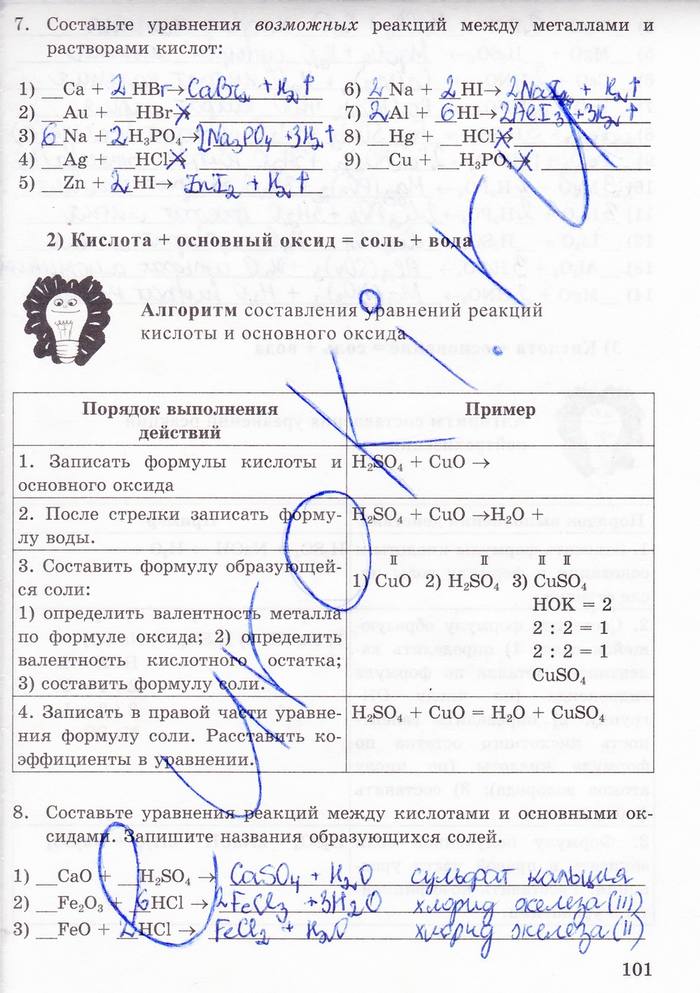 7. Составьте уравнения возможных реакций между металлами и
растворами кислот:
1) __Ca + 2 HBr→ CaBr₂ + H₂↑
2) __Au + __HBr→
3) 6 Na + 2 H₃PO₄→ 2Na₃PO₄ + 3H₂↑
4) __Ag + __HCl→
5) __Zn + 2 HI→ ZnI₂ + H₂↑
6) 2 Na + 2 HI→ 2NaI + H₂↑
7) 2 Al + 6 HI→ 2AlI₃ + 3H₂↑
8) __Hg + __HCl→
9) __Cu + __H₃PO₄→
2) Кислота + основный оксид = соль + вода
Алгоритм составления уравнений реакций
кислоты и основного оксида
Порядок выполнения
действий
Пример
1. Записать формулы кислоты и
основного оксида
H₂SO₄ + CuO →
2. После стрелки записать форму-
лу воды.
H₂SO₄ + CuO →H₂O +
3. Составить формулу образующей-
ся соли:
1) определить валентность металла
по формуле оксида; 2) определить
валентность кислотного остатка;
3) составить формулу соли.
II II II II
1) CuO 2) H₂SO₄ 3) CuSO₄
НОК = 2
2 : 2 = 1
2 : 2 = 1
CuSO₄
4. Записать в правой части уравне-
ния формулу соли. Расставить ко-
эффициенты в уравнении.
H₂SO₄ + CuO = H₂O + CuSO₄
8. Составьте уравнения реакций между кислотами и основными ок-
сидами. Запишите названия образующихся солей.
1) __CaO + __H₂SO₄ → CaSO₄ + H₂O сульфат кальция
2) __Fe₂O₃ + 6 HCl → 2FeCl₃ + 3H₂O хлорид железа (III)
3) __FeO + 2 HCl → FeCl₂ + H₂O хлорид железа (II)
101
UROKI.RU